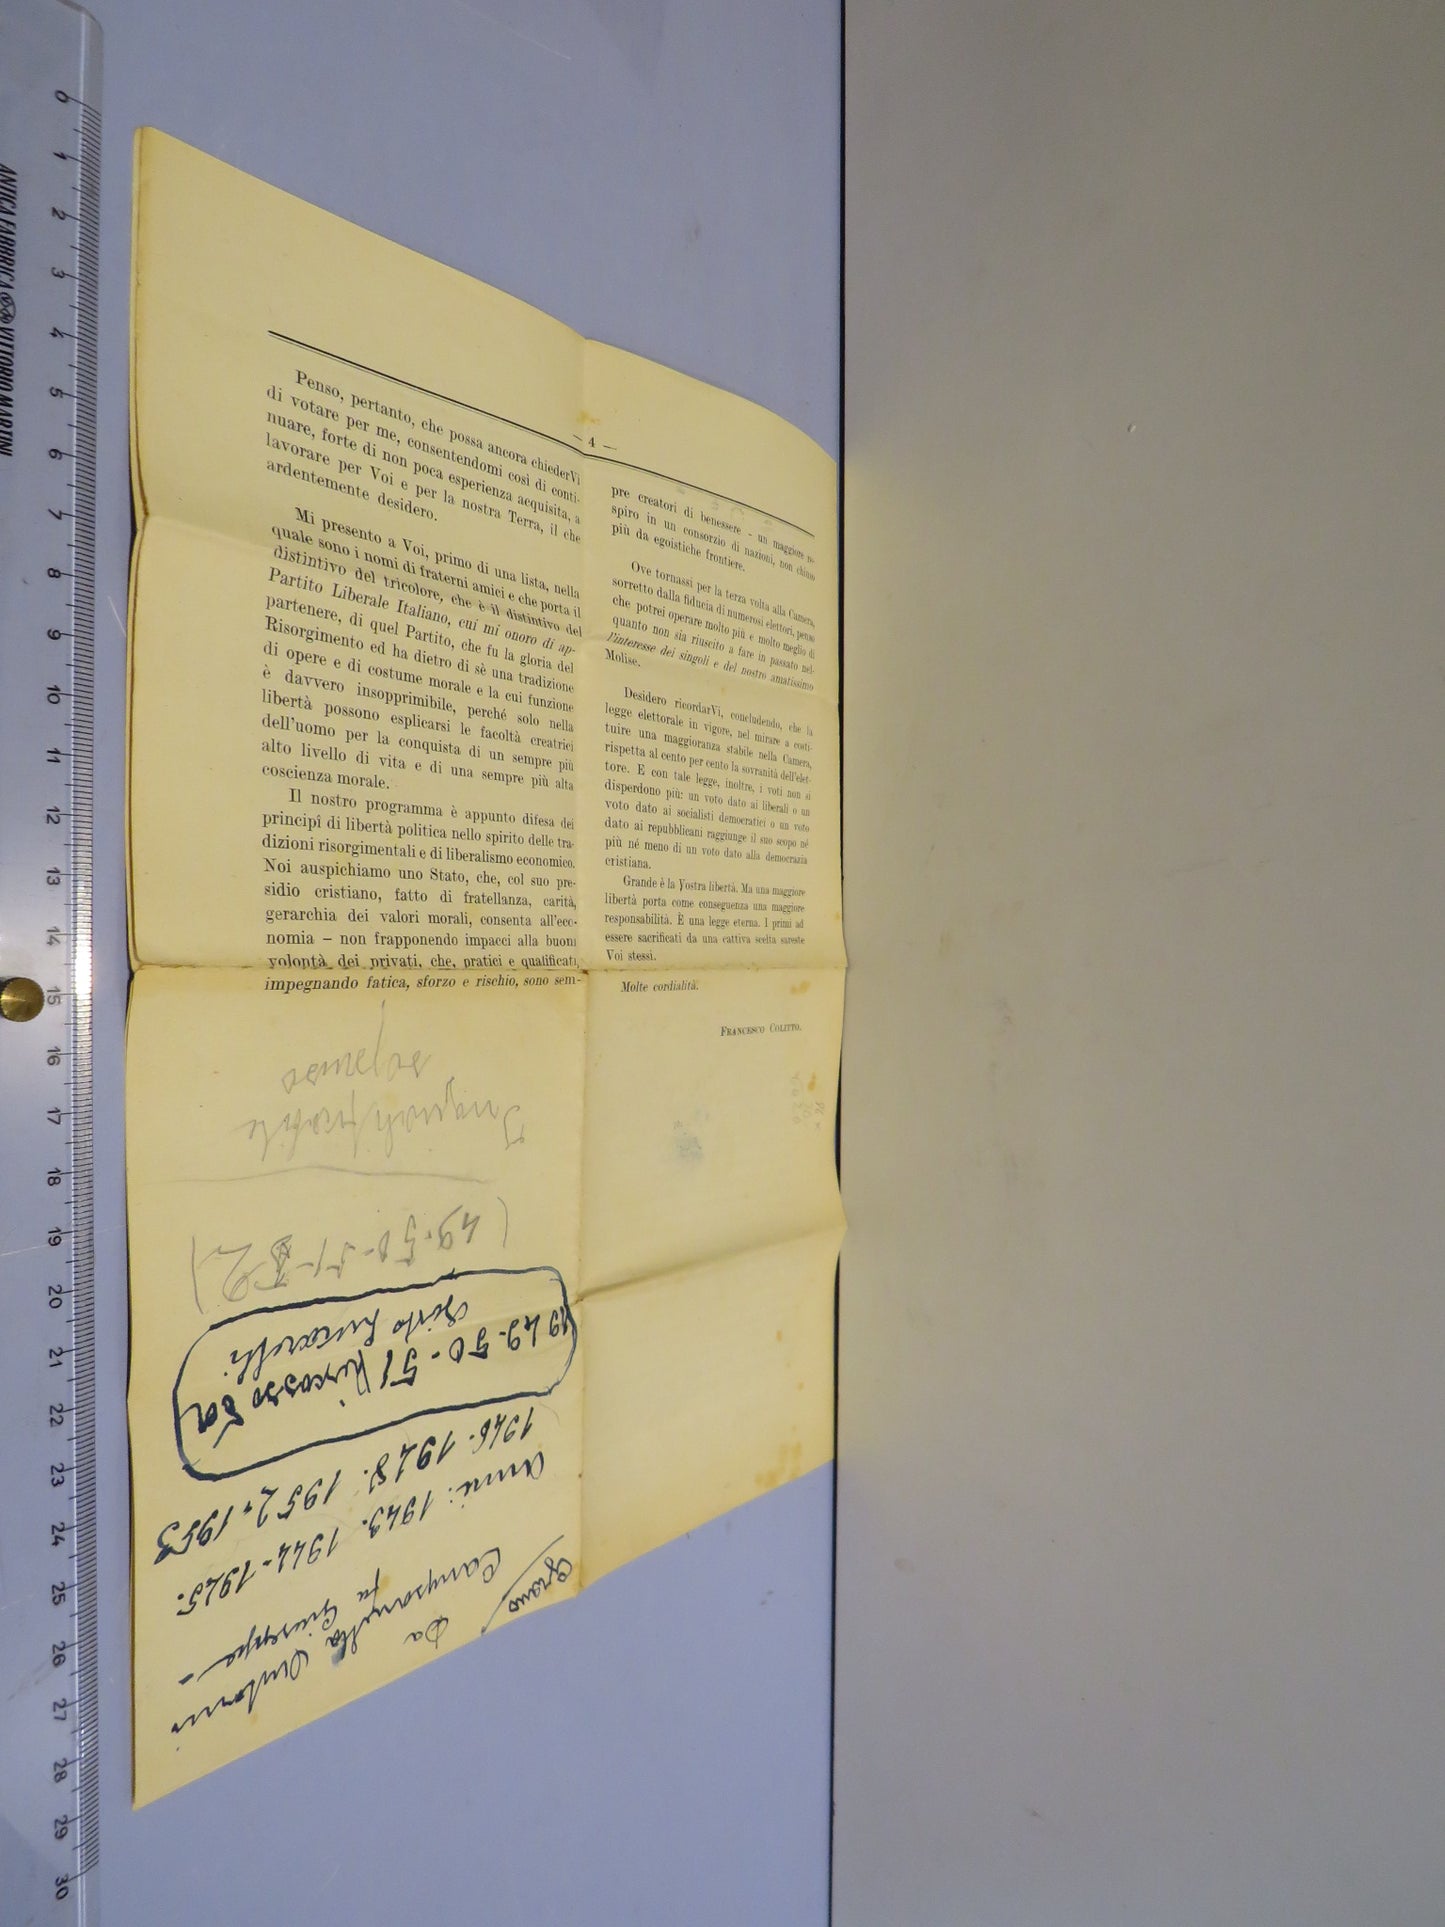 — 4 —
Penso, pertanto, che possa ancora chiederVi
di votare per me, consentendomi così di conti-
nuare, forte di non poca esperienza acquisita, a
lavorare per Voi e per la nostra Terra, il che
ardentemente desidero.
Mi presento a Voi, primo di una lista, nella
quale sono i nomi di fraterni amici e che porta il
distintivo del tricolore, che è il distintivo del
Partito Liberale Italiano, cui mi onoro di ap-
partenere, di quel Partito, che fu la gloria del
Risorgimento ed ha dietro di sè una tradizione
di opere e di costume morale e la cui funzione
è davvero insopprimibile, perché solo nella
libertà possono esplicarsi le facoltà creatrici
dell'uomo per la conquista di un sempre più
alto livello di vita e di una sempre più alta
coscienza morale.
Il nostro programma è appunto difesa dei
principî di libertà politica nello spirito delle tra-
dizioni risorgimentali e di liberalismo economico.
Noi auspichiamo uno Stato, che, col suo pre-
sidio cristiano, fatto di fratellanza, carità,
gerarchia dei valori morali, consenta all'eco-
nomia – non frapponendo impacci alla buona
volontà dei privati, che, pratici e qualificati,
impegnando fatica, sforzo e rischio, sono sem-
pre creatori di benessere - un maggiore re-
spiro in un consorzio di nazioni, non chiuso
più da egoistiche frontiere.
Ove tornassi per la terza volta alla Camera,
sorretto dalla fiducia di numerosi elettori, penso
che potrei operare molto più e molto meglio di
quanto non sia riuscito a fare in passato nel-
l'interesse dei singoli e del nostro amatissimo
Molise.
Desidero ricordarVi, concludendo, che la
legge elettorale in vigore, nel mirare a costi-
tuire una maggioranza stabile nella Camera,
rispetta al cento per cento la sovranità dell'elet-
tore. E con tale legge, inoltre, i voti non si
disperdono più: un voto dato ai liberali o un
voto dato ai socialisti democratici o un voto
dato ai repubblicani raggiunge il suo scopo né
più né meno di un voto dato alla democrazia
cristiana.
Grande è la Vostra libertà. Ma una maggiore
libertà porta come conseguenza una maggiore
responsabilità. È una legge eterna. I primi ad
essere sacrificati da una cattiva scelta sareste
Voi stessi.
Molte cordialità.
Francesco Colitto.
Grano
Da
Campanella Antonio
fu Giuseppe -
Anni: 1943. 1944 - 1945.
1946. 1948. 1952. 1953
1949-50-51 Riscosso da
Sisto
(49-50-51-52)
ANTICA FABBRICA VITTORIO MARTINI
0 1 2 3 4 5 6 7 8 9 10 11 12 13 14 15 16 17 18 19 20 21 22 23 24 25 26 27 28 29 30